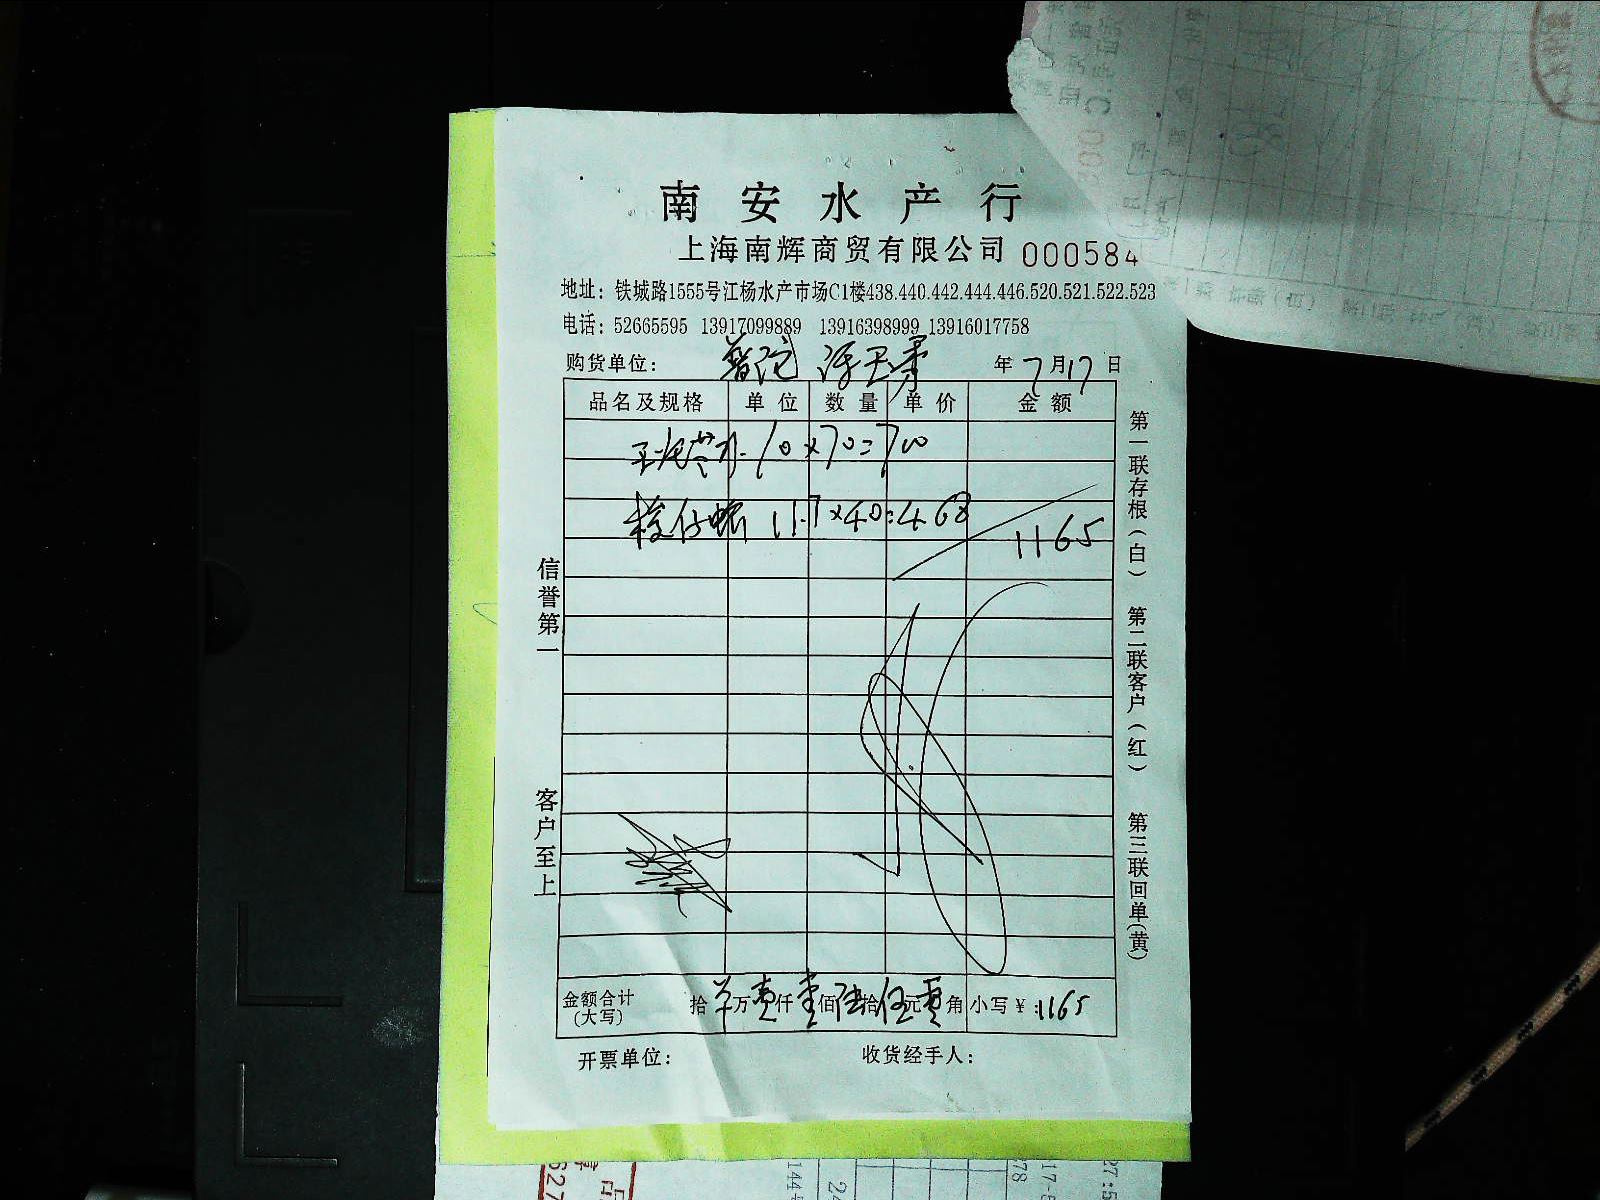 南安水产行
上海南辉商贸有限公司 000584
地址：铁城路1555号江杨水产市场C1楼438.440.442.444.446.520.521.522.523
电话：52665595 13917099889 13916398999 13916017758
购货单位： 普陀 年 7 月 17 日
品名及规格 单位 数量 单价 金额
10×70=700
梭仔蟹 11.7×40=468
1165
信誉第一
客户至上
第一联存根（白） 第二联客户（红） 第三联回单（黄）
金额合计 拾 万 壹 仟 壹 佰 陆 拾 伍 元 零 角 小写￥：1165
(大写)
开票单位： 收货经手人：